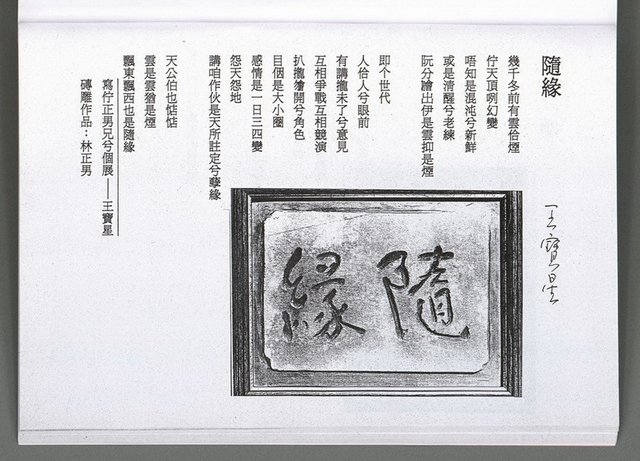 隨緣
王寶星
幾千冬前有雲佮煙
佇天頂咧幻變
唔知是混沌兮新鮮
或是清醒兮老練
阮分獪出伊是雲抑是煙
即个世代
人佮人兮眼前
有講攏未了兮意見
互相爭戰互相競演
扒攏獪開兮角色
目個是大小圈
感情是一日三四變
怨天怨地
講咱作伙是天所註定兮孽緣
天公伯也惦惦
雲是雲猶是煙
飄東飄西也是隨緣
寫佇正男兄兮個展——王寶星
磚雕作品：林正男
隨緣